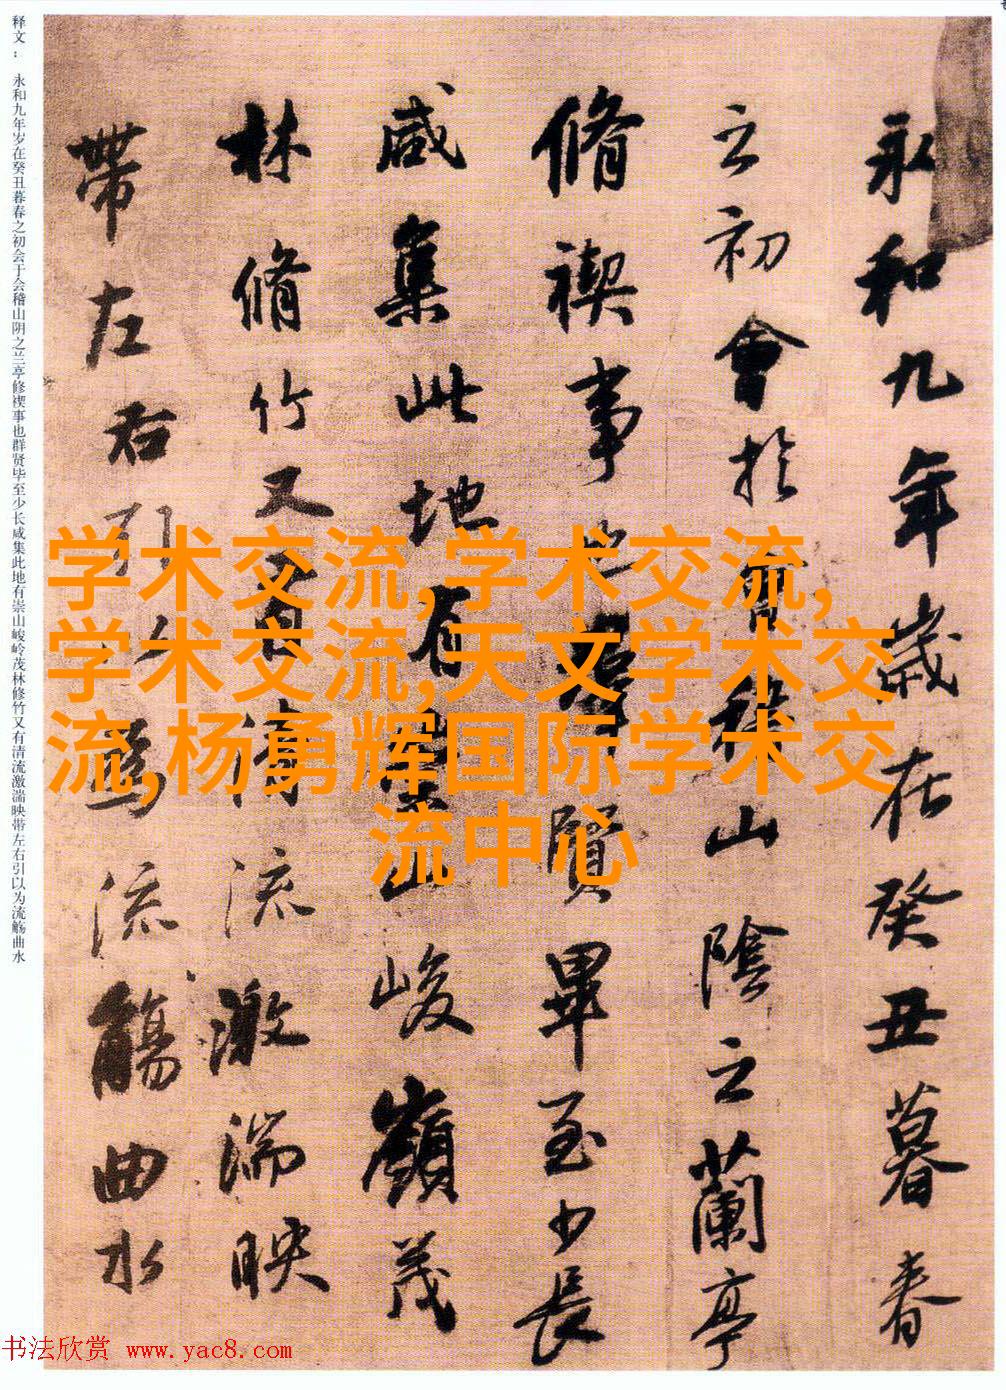 永和九年歲在癸丑暮春
之初會於會稽山陰之蘭亭
脩禊事也羣賢畢至少長
咸集此地有崇山峻嶺茂
林脩竹又有清流激湍映
帶左右引以為流觴曲水
释文：永和九年岁在癸丑暮春之初会于会稽山阴之兰亭修禊事也群贤毕至少长咸集此地有崇山峻岭茂林修竹又有清流激湍映带左右引以为流觞曲水
学术交流,学术交流,
学术交流,天文学术交
流,杨勇辉国际学术交
流中心
书法欣赏 www.yac8.com